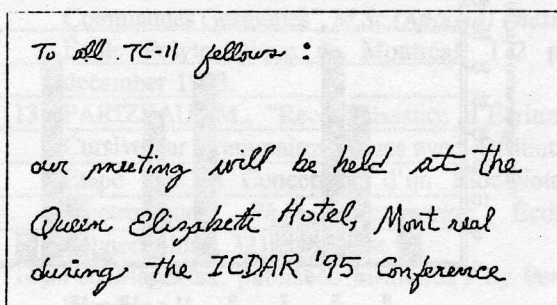 To all TC-11 fellows :
our meeting will be held at the
Queen Elizabeth Hotel, Montreal
during the ICDAR '95 Conference